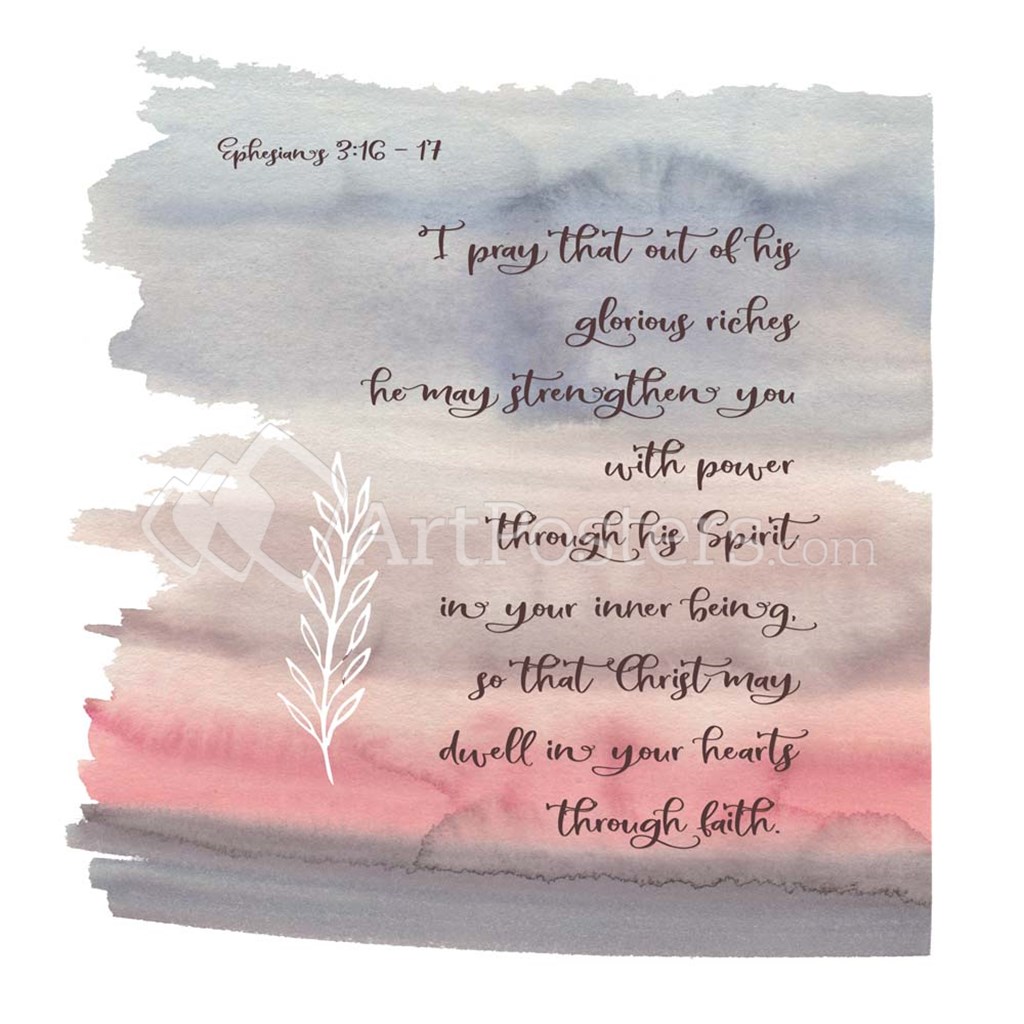 Ephesians 3:16 - 17
I pray that out of his
glorious riches
he may strengthen you
with power
through his Spirit
in your inner being,
so that Christ may
dwell in your hearts
through faith.
ArtPosters.com